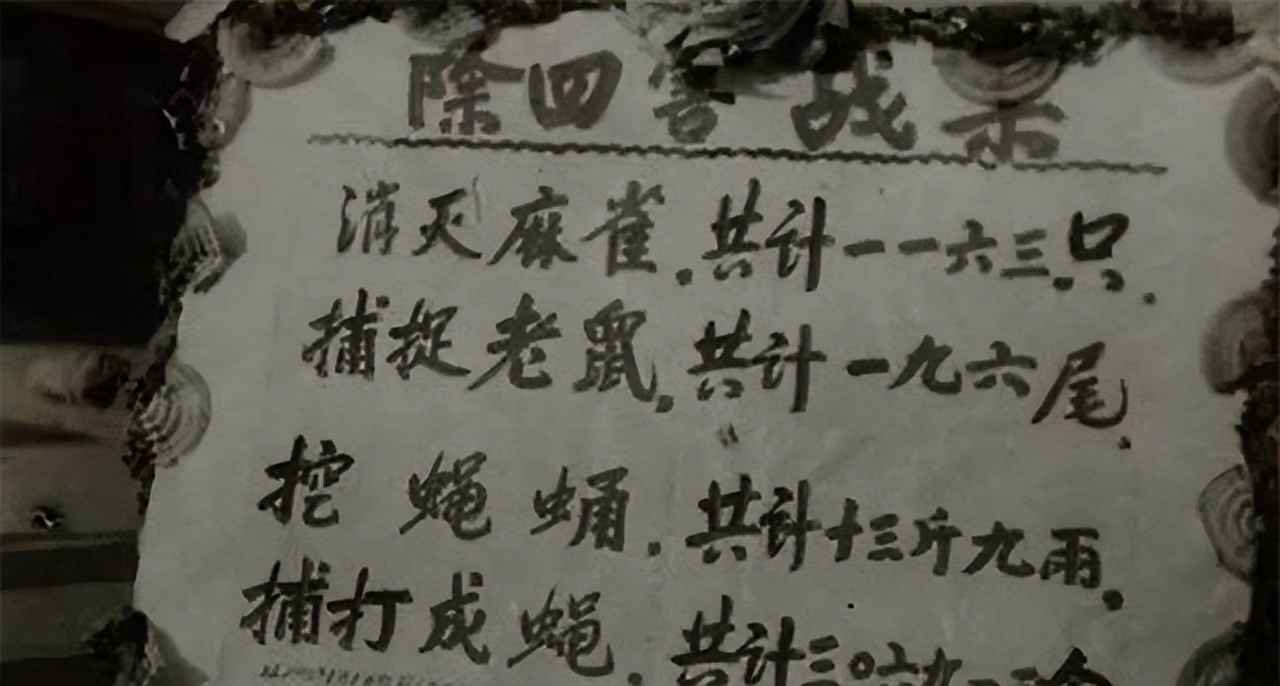 除四害战示
消灭麻雀.共计一一六三只.
捕捉老鼠.共计一九六尾.
挖蝇蛹.共计十三斤九雨.
捕打成蝇.共计三〇六九